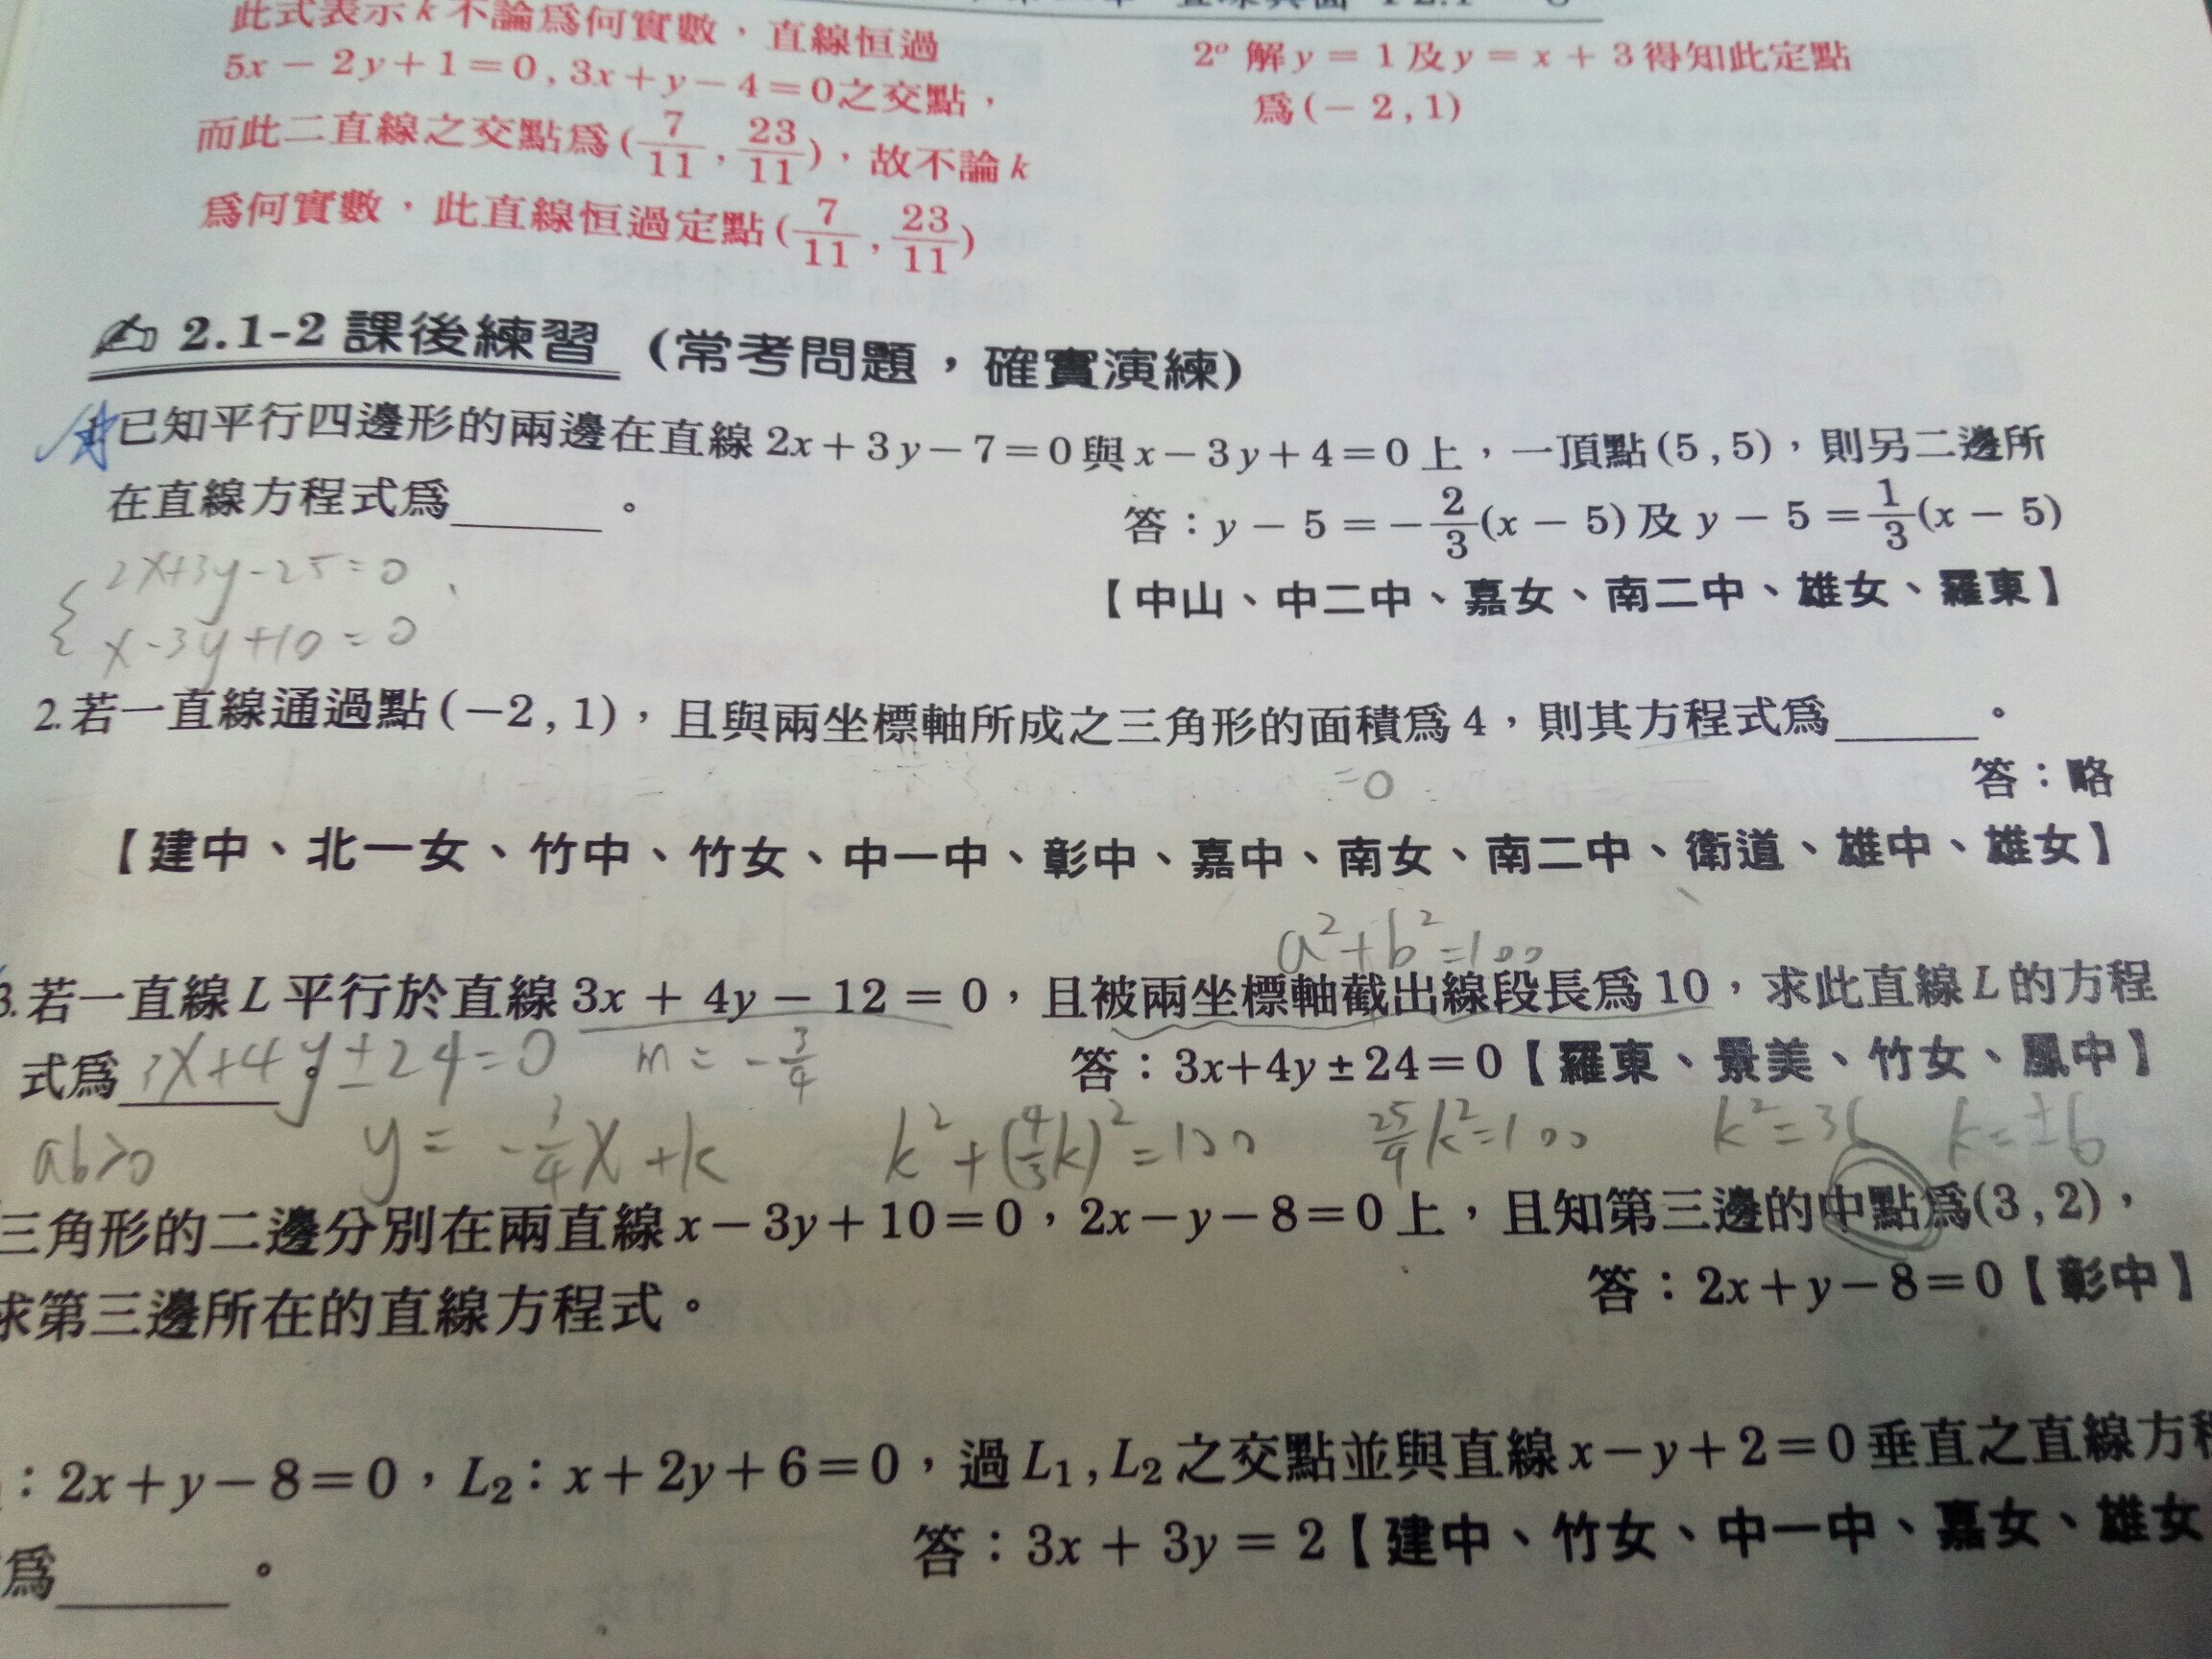 此式表示k不論爲何實數，直線恒過
5x－2y＋1＝0，3x＋y－4＝0之交點，
而此二直線之交點爲(7/11，23/11)，故不論k
爲何實數，此直線恒過定點(7/11，23/11)
2° 解y＝1及y＝x＋3得知此定點
爲(－2，1)
2.1-2課後練習（常考問題，確實演練）
1.已知平行四邊形的兩邊在直線2x＋3y－7＝0與x－3y＋4＝0上，一頂點(5，5)，則另二邊所
在直線方程式爲______。
答：y－5＝－2/3(x－5)及y－5＝1/3(x－5)
【中山、中二中、嘉女、南二中、雄女、羅東】
2x+3y-25=0
x-3y+10=0
2.若一直線通過點(－2，1)，且與兩坐標軸所成之三角形的面積爲4，則其方程式爲______。
=0
答：略
【建中、北一女、竹中、竹女、中一中、彰中、嘉中、南女、南二中、衛道、雄中、雄女】
a²+b²=100
3.若一直線L平行於直線3x＋4y－12＝0，且被兩坐標軸截出線段長爲10，求此直線L的方程
式爲______。
3x+4y±24=0
m=-3/4
答：3x＋4y±24＝0【羅東、景美、竹女、鳳中】
ab>0
y=-3/4x+k
k²+(4/3k)²=100
25/9k²=100
k²=36
k=±6
三角形的二邊分別在兩直線x－3y＋10＝0，2x－y－8＝0上，且知第三邊的中點爲(3，2)，
求第三邊所在的直線方程式。
答：2x＋y－8＝0【彰中】
：2x＋y－8＝0，L₂：x＋2y＋6＝0，過L₁，L₂之交點並與直線x－y＋2＝0垂直之直線方程
爲______。
答：3x＋3y＝2【建中、竹女、中一中、嘉女、雄女